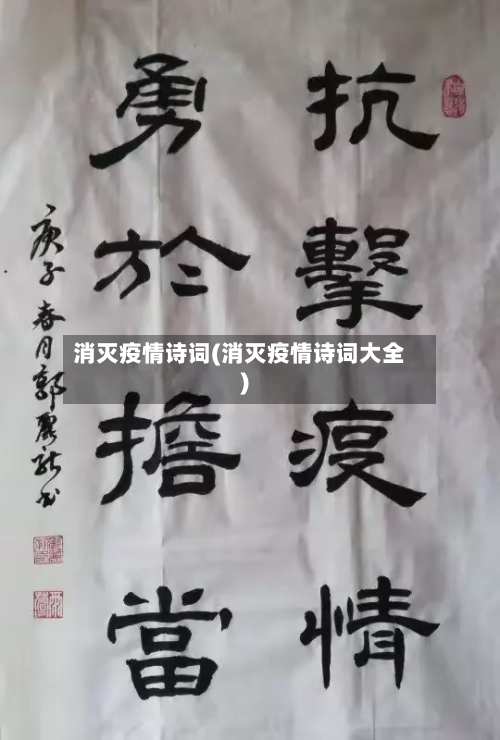 抗擊疫情
勇於擔當
庚子春月郭
书
消灭疫情诗词(消灭疫情诗词大全
)